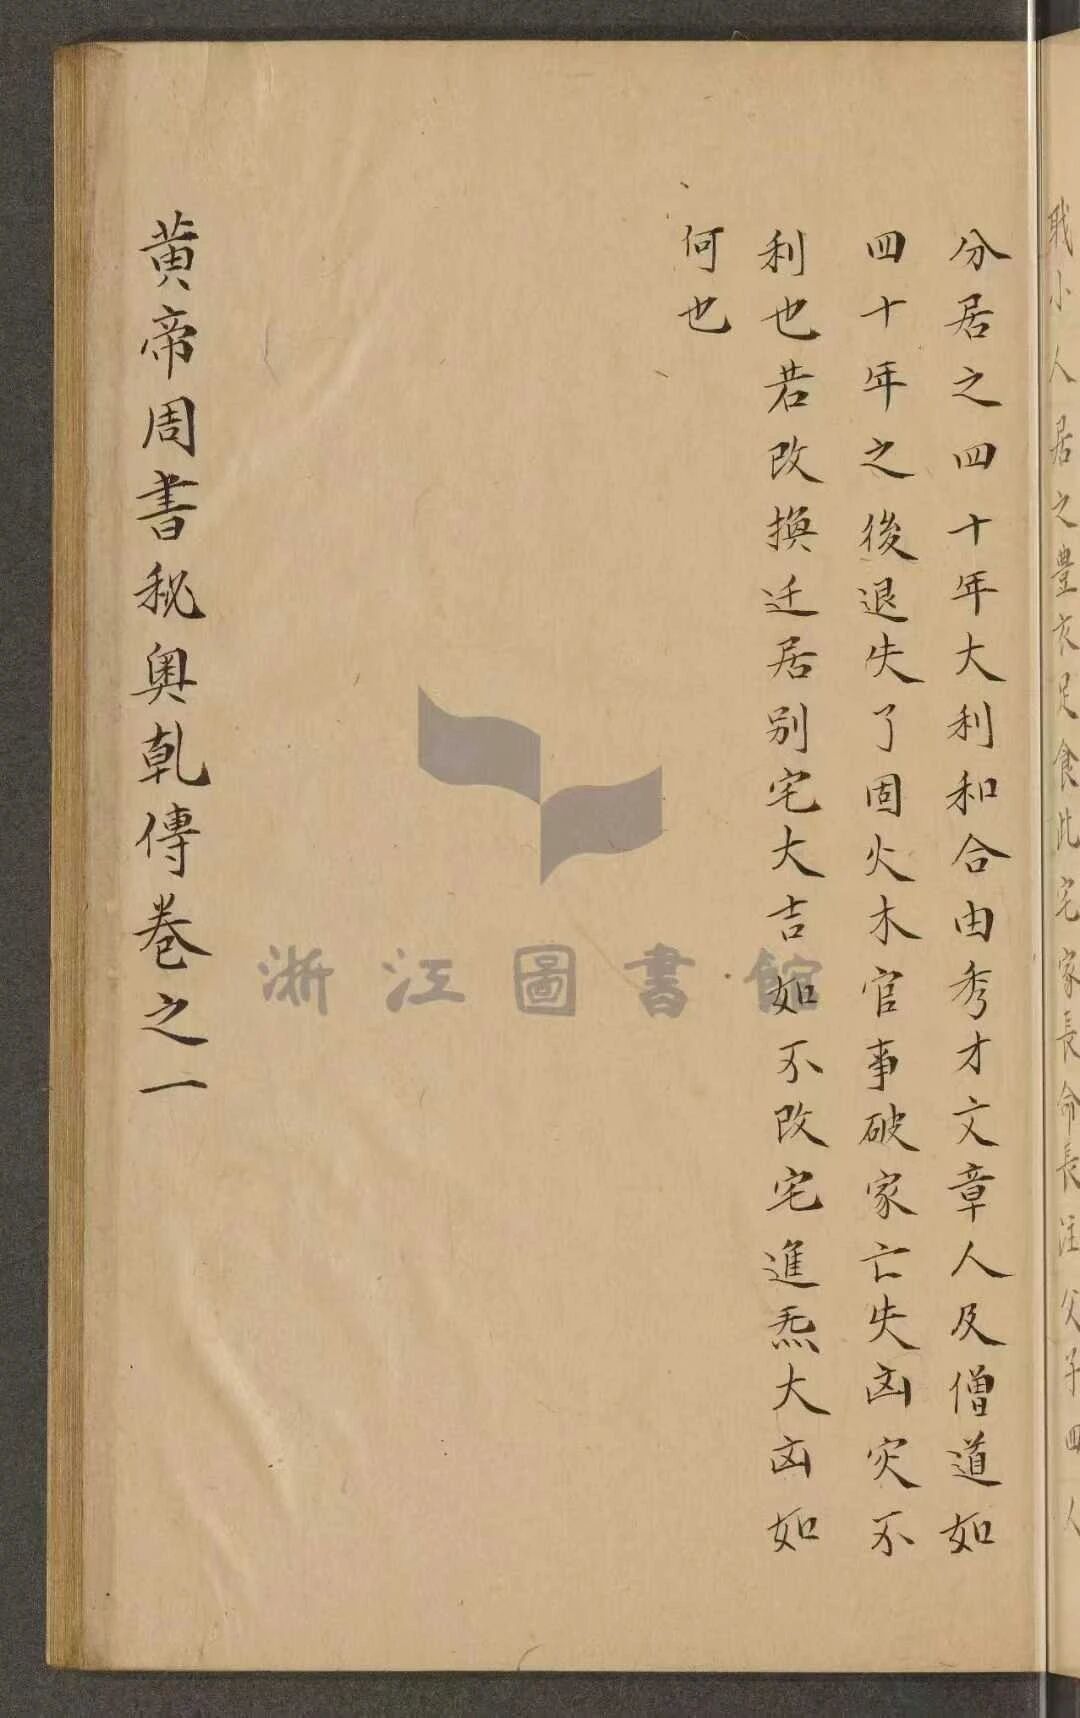 戝小人居之豊衣足食此宅家長命長注父子四人
分居之四十年大利和合由秀才文章人及僧道如
四十年之後退失了固火木官事破家亡失凶灾不
利也若改換迁居别宅大吉如不改宅進炁大凶如
何也
黄帝周書秘奥乹傳卷之一
浙江圖書館